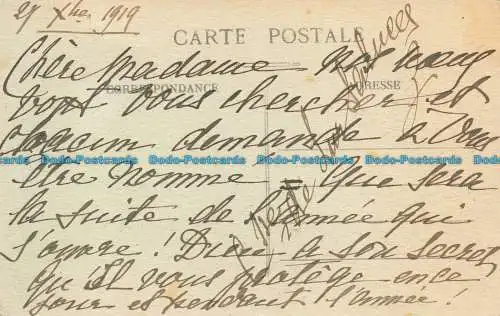 27 Xbre 1919
CARTE POSTALE
Chère Madame nos vœux
CORRESPONDANCE
ADRESSE
vont vous chercher et
chacun demande à vous
être nommé = Que sera
la suite de l'année qui
s'ouvre ! Dieu a son secret,
qu'Il vous protège en ce
jour et pendant l'année !
Bodo-Postcards Bodo-Postcards Bodo-Postcards Bodo-Postcards